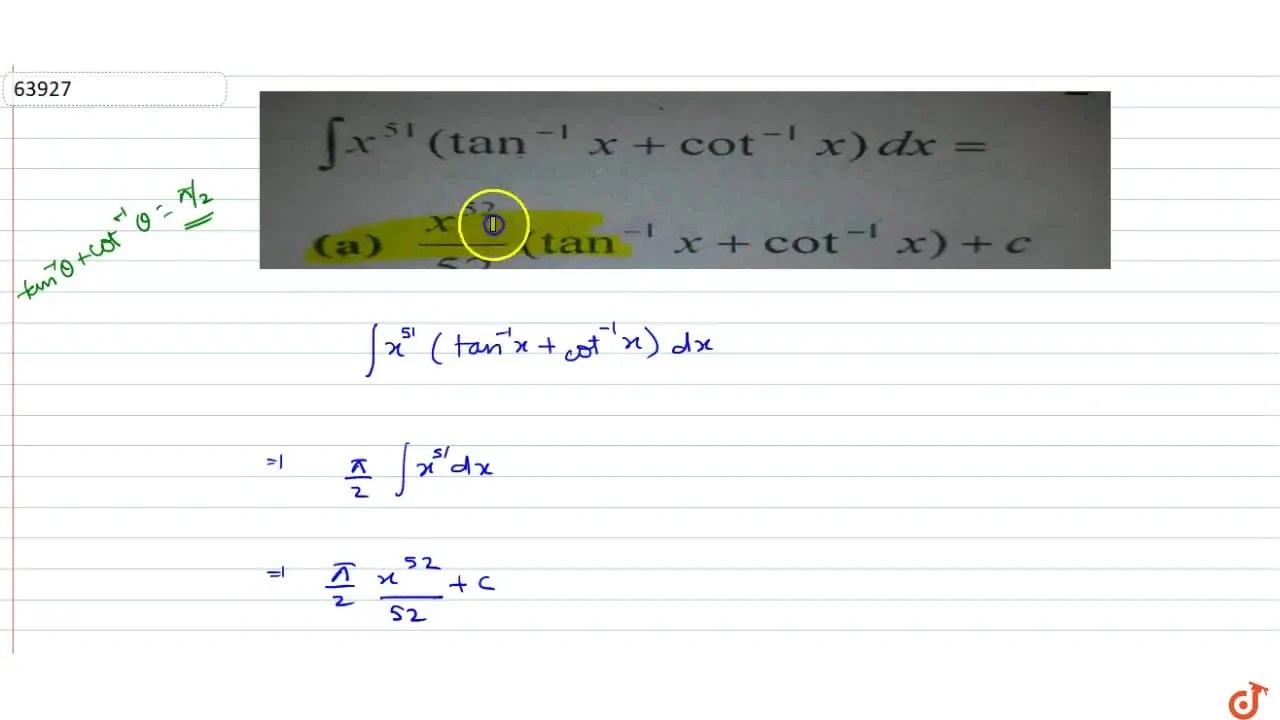 63927
∫x⁵¹ (tan⁻¹ x + cot⁻¹ x) dx =
(a) x⁵²/52 (tan⁻¹ x + cot⁻¹ x) + c
tan⁻¹θ + cot⁻¹ θ = π/2
∫x⁵¹ (tan⁻¹x + cot⁻¹x) dx
=) π/2 ∫x⁵¹ dx
=) π/2 x⁵²/52 + c